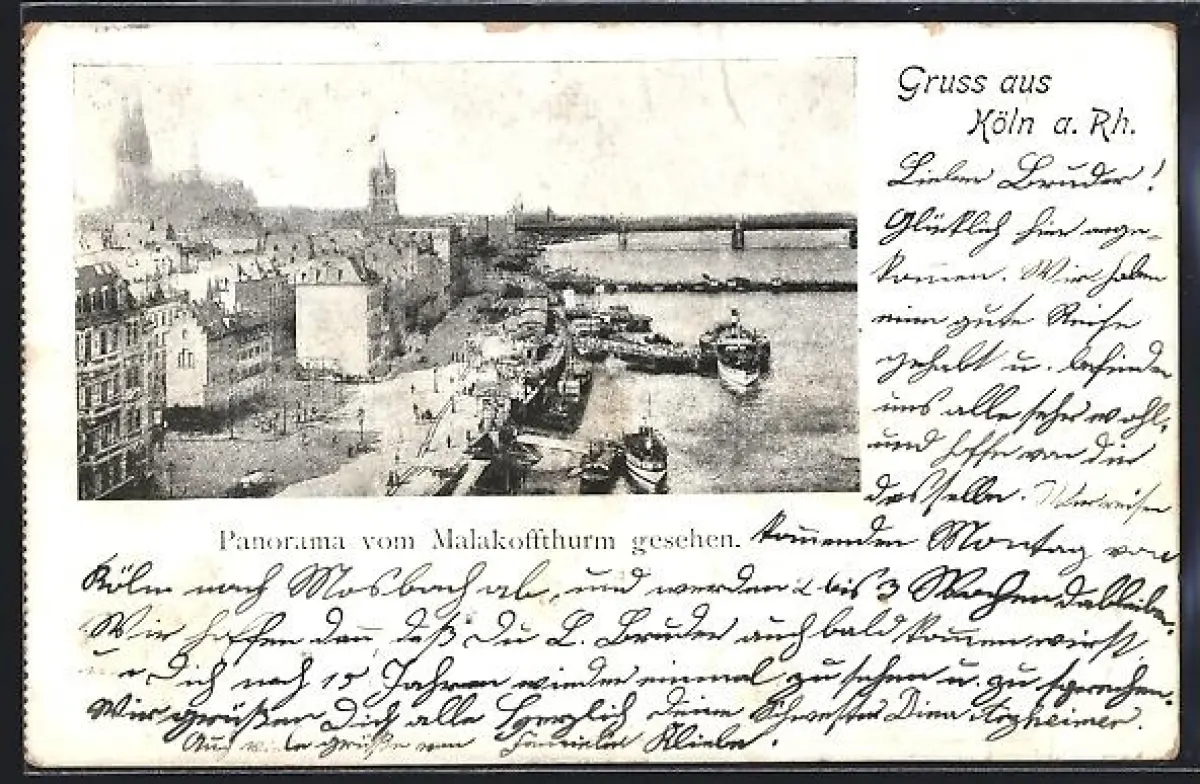 Gruss aus
Köln a. Rh.
Lieber Bruder!
Glücklich hier ange-
kommen. Wir haben
eine gute Reise
gehabt u. befinden
uns alle sehr wohl,
und hoffe von dir
dasselbe. Wir reisen
Panorama vom Malakoffthurm gesehen.
kommenden Montag von
Köln nach Mosbach ab, und werden 2 bis 3 Wochen dableiben.
Wir hoffen dann, daß Du L. Bruder auch bald kommen wirst,
Dich nach 15 Jahren wieder einmal zu sehen u. zu sprechen.
Wir grüßen Dich alle herzlich Deine Schwester Dina
Auch viele grüße von Familie